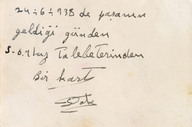 24-6-938 de paşamın
geldiği günden
Talebelerinden
Bir kart